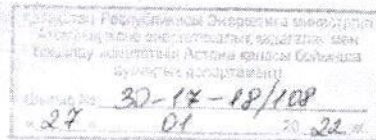 Қазақстан Республикасы Энергетика министрлігі
Атомдық және энергетикалық қадағалау мен
бақылау комитетінің Астана қаласы бойынша
аумақтық департаменті
№ 30-17-18/108
« 27 » 01 20 22 ж.